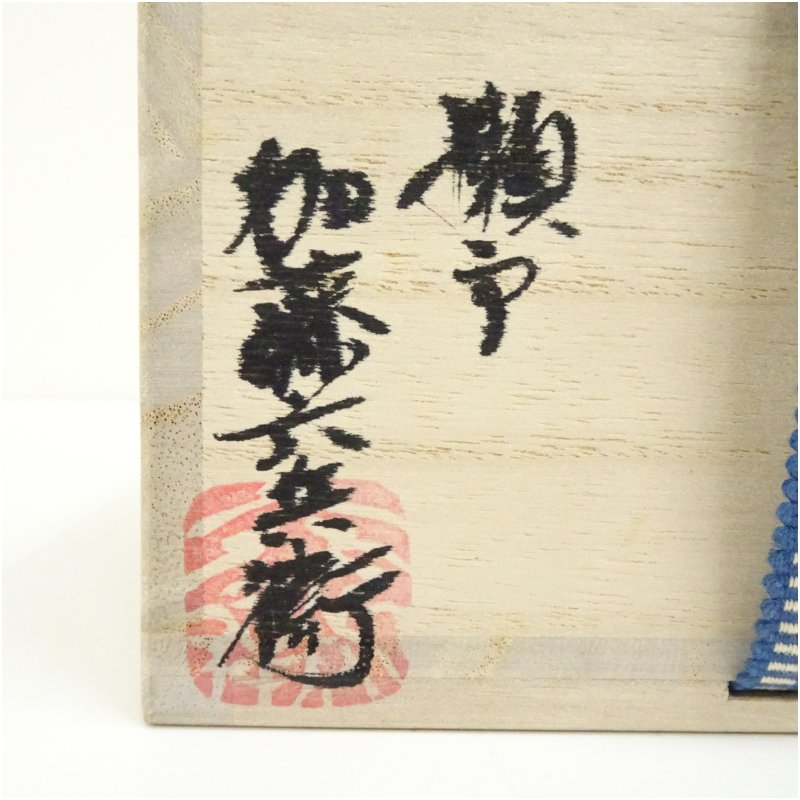 瀬戸
加藤六兵衛